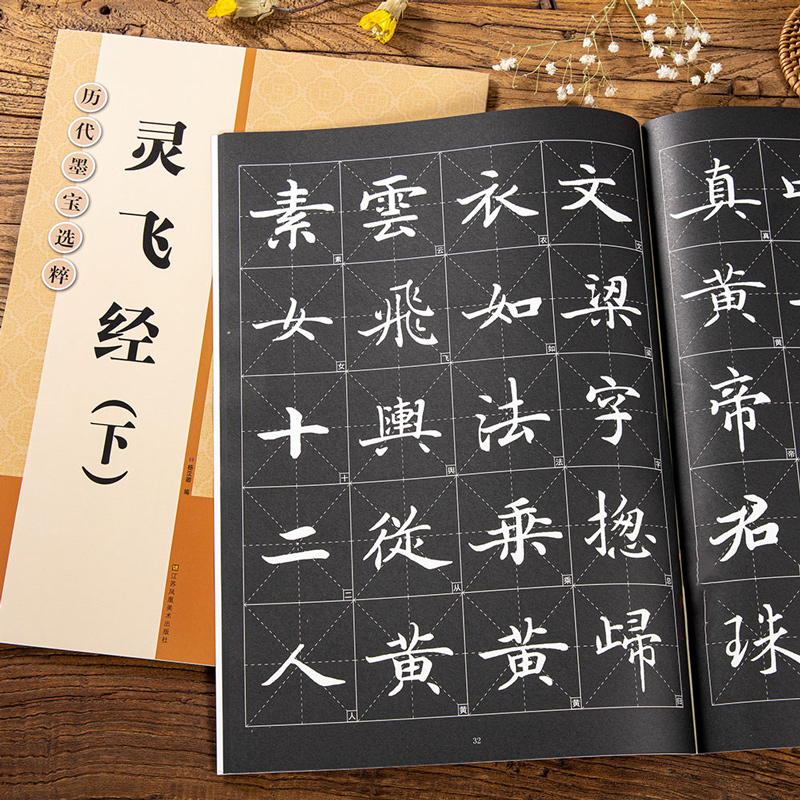 历代墨宝选粹
灵飞经(下)
编
江苏凤凰美术出版社
真黄帝君珠
真
黄
帝
文梁字揔㱕
文
梁
字
总
归
衣如法乘黄
衣
如
法
乘
黄
雲飛輿從黄
云
飞
舆
从
黄
素女十二人
素
女
十
二
人
32